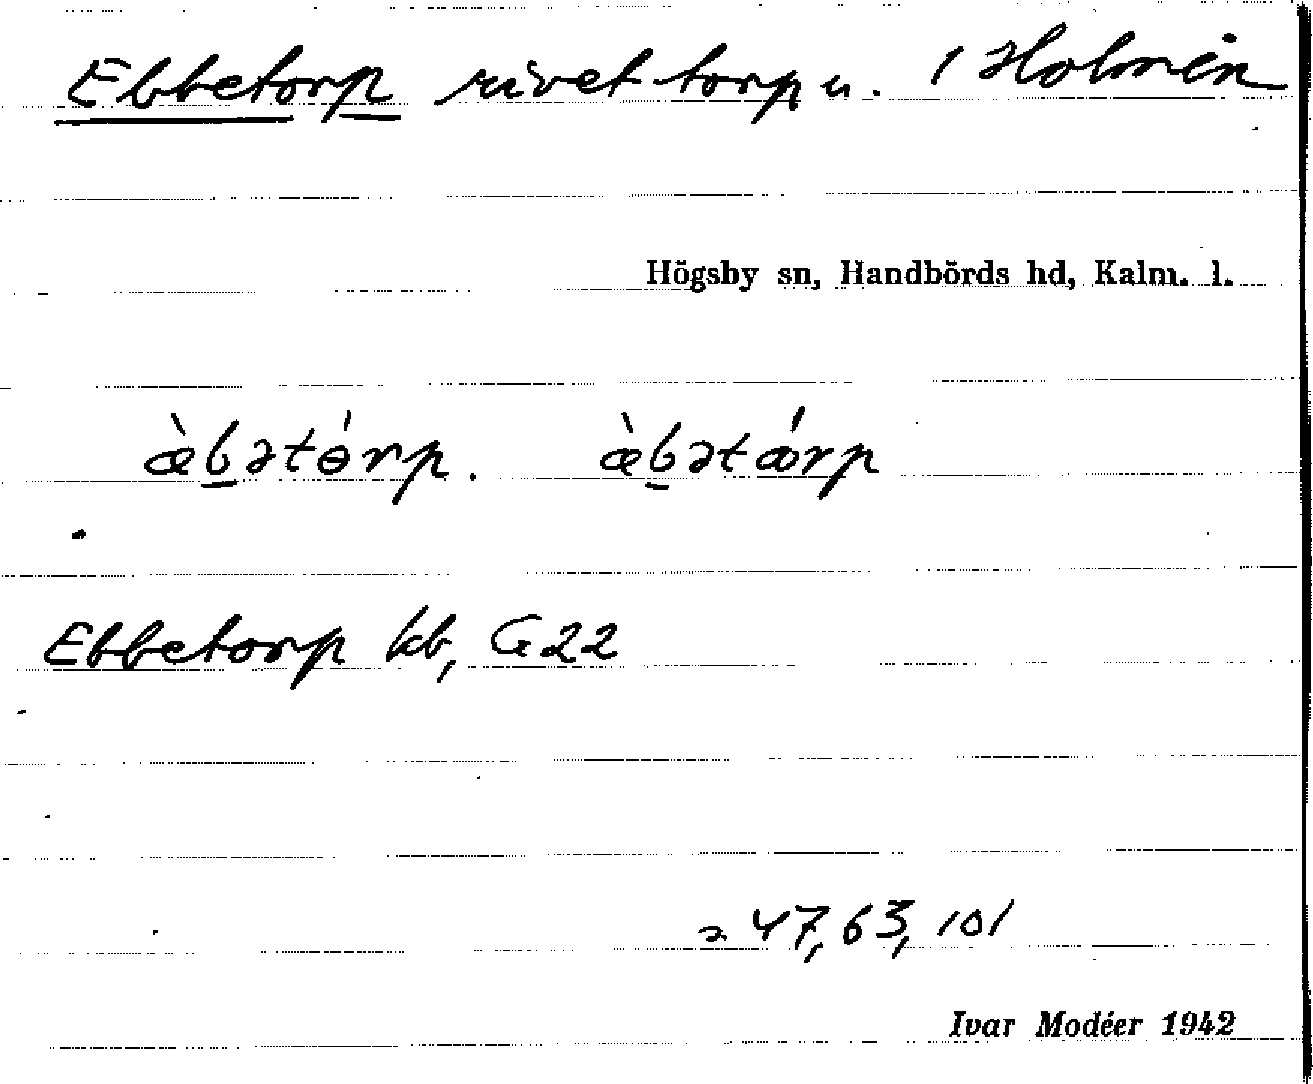 Ebbetorp rivet torp u. / Holmen
Högsby sn, Handbörds hd, Kalm. l.
æ̀b̲ətɵ́rp. æ̀b̲ətǻrp
Ebbetorp kb, G22
47, 63, 101
Ivar Modéer 1942